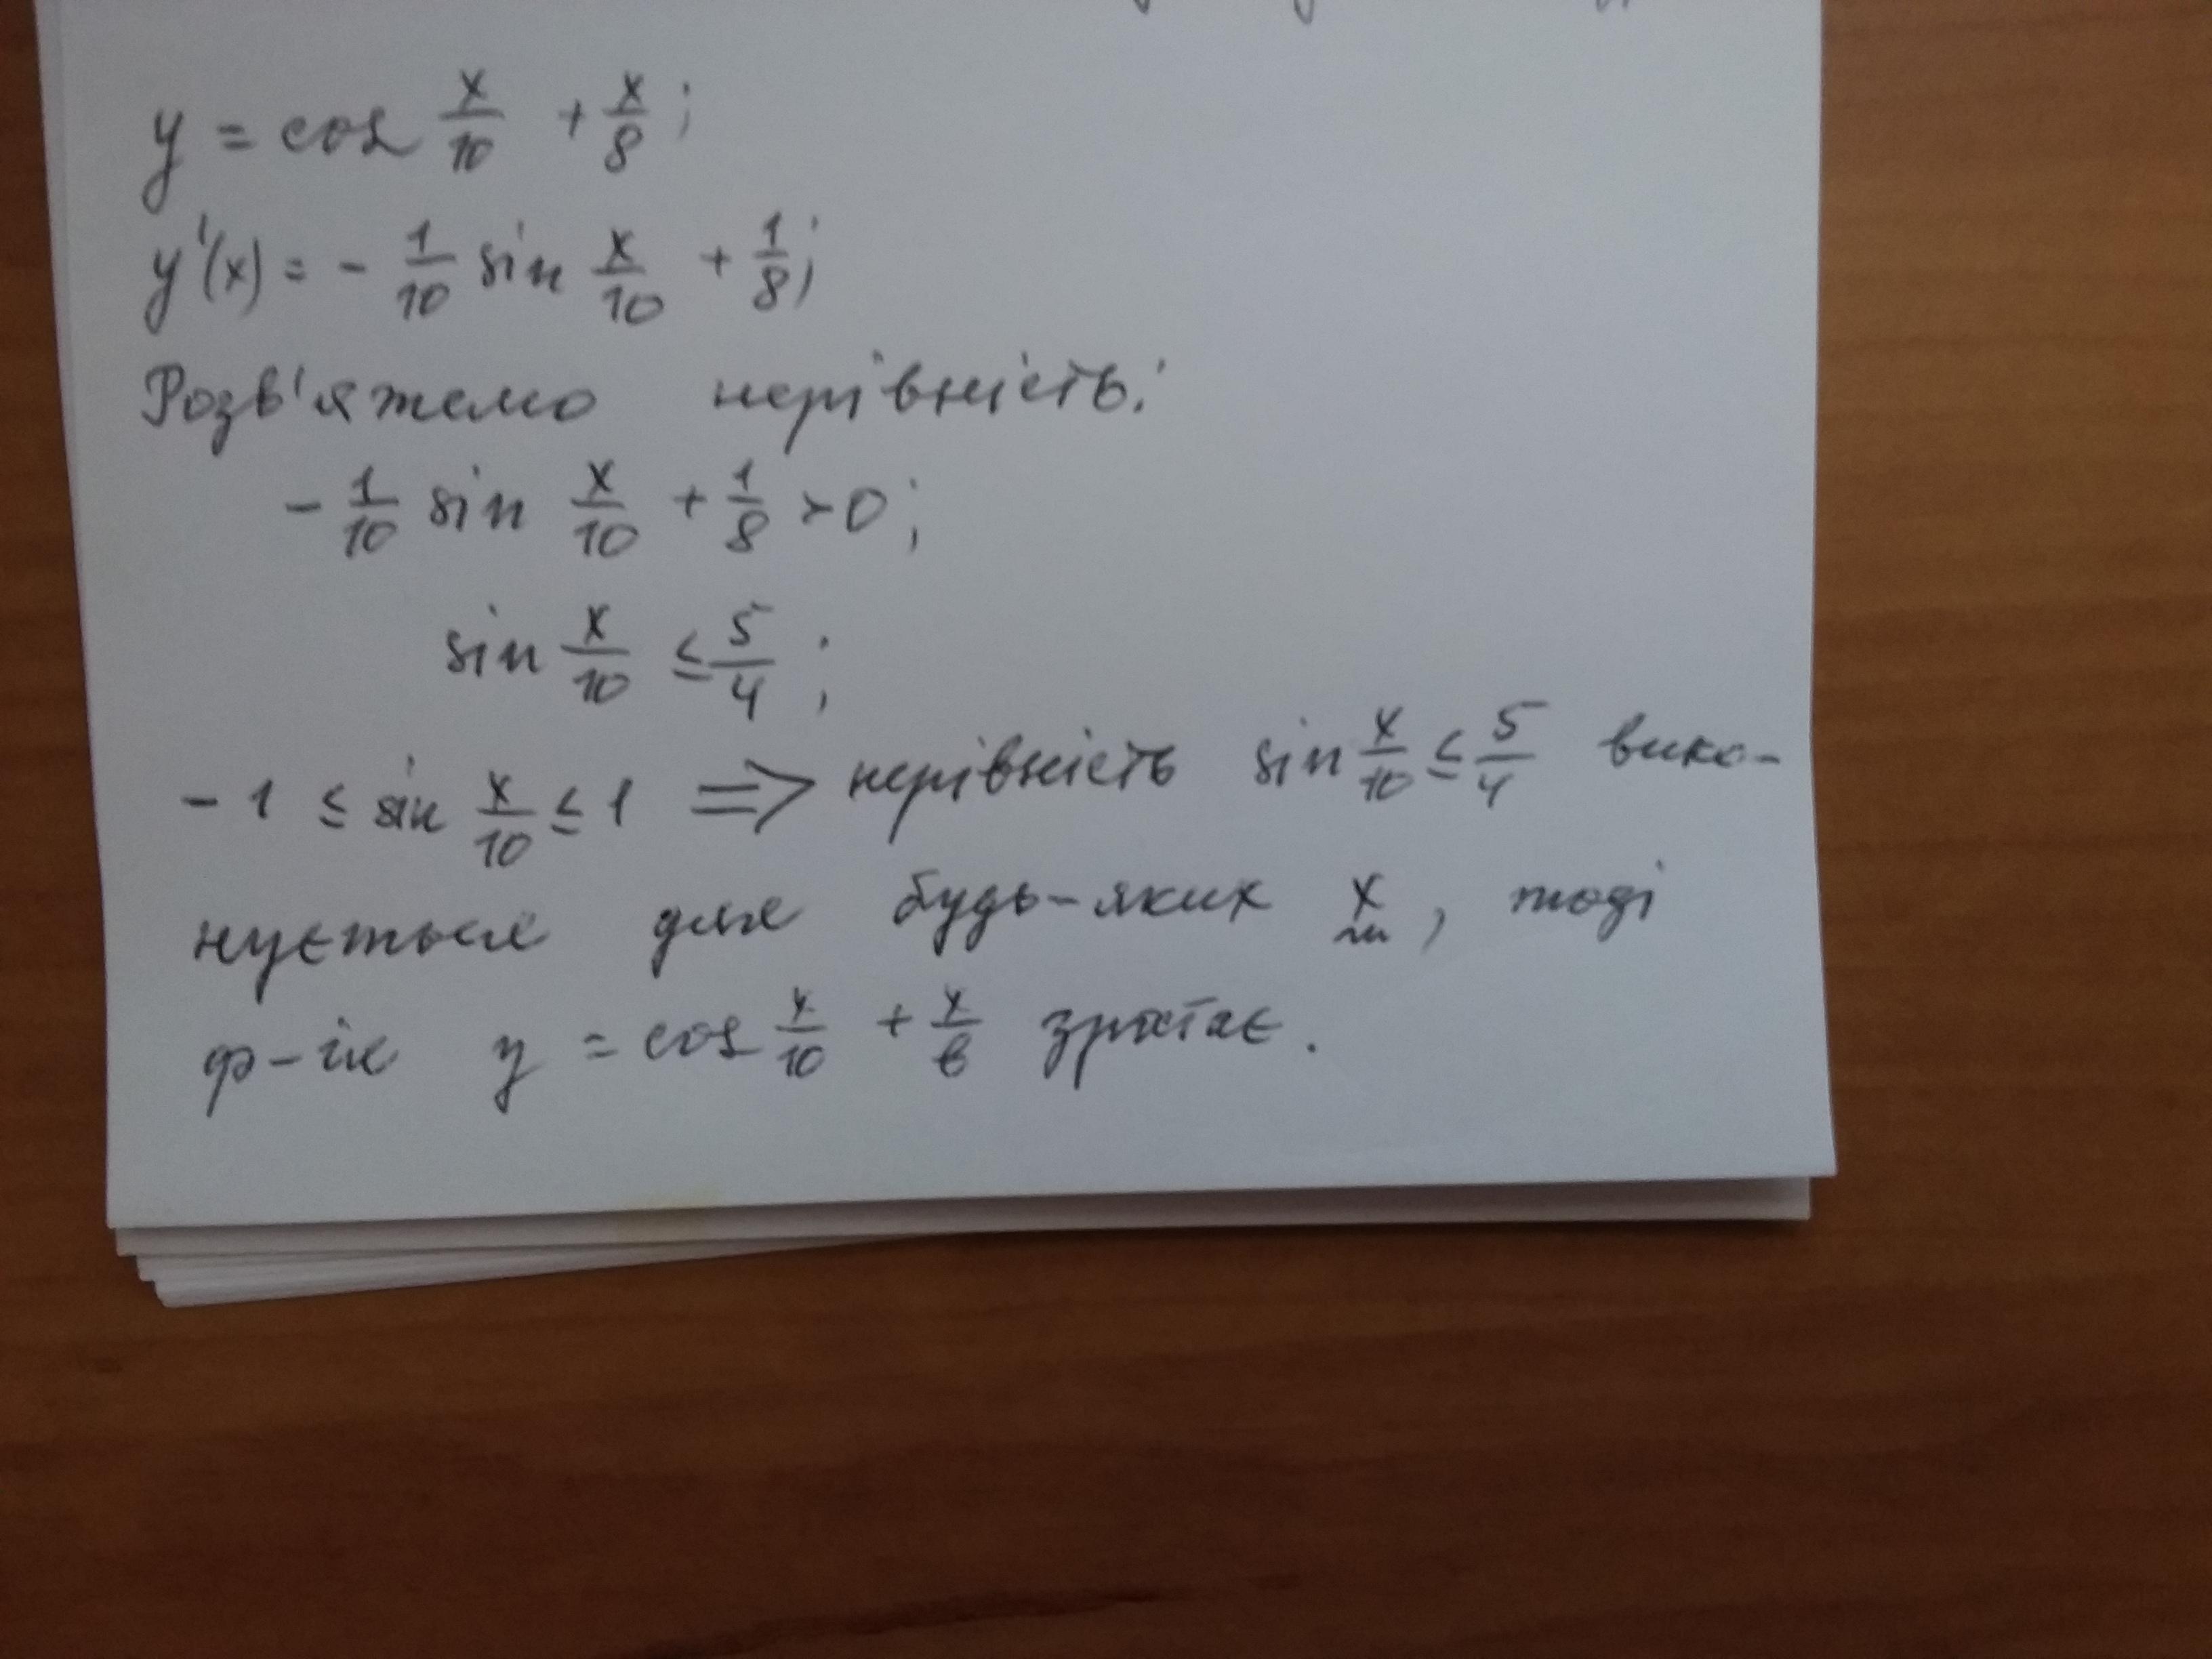 y = cos x/10 + x/8;
y'(x) = - 1/10 sin x/10 + 1/8;
Розв'яжемо нерівність:
- 1/10 sin x/10 + 1/8 > 0;
sin x/10 ≤ 5/4;
-1 ≤ sin x/10 ≤ 1 ⇒ нерівність sin x/10 ≤ 5/4 вико-
нується для будь-яких x, тоді
ф-ія y = cos x/10 + x/8 зростає.